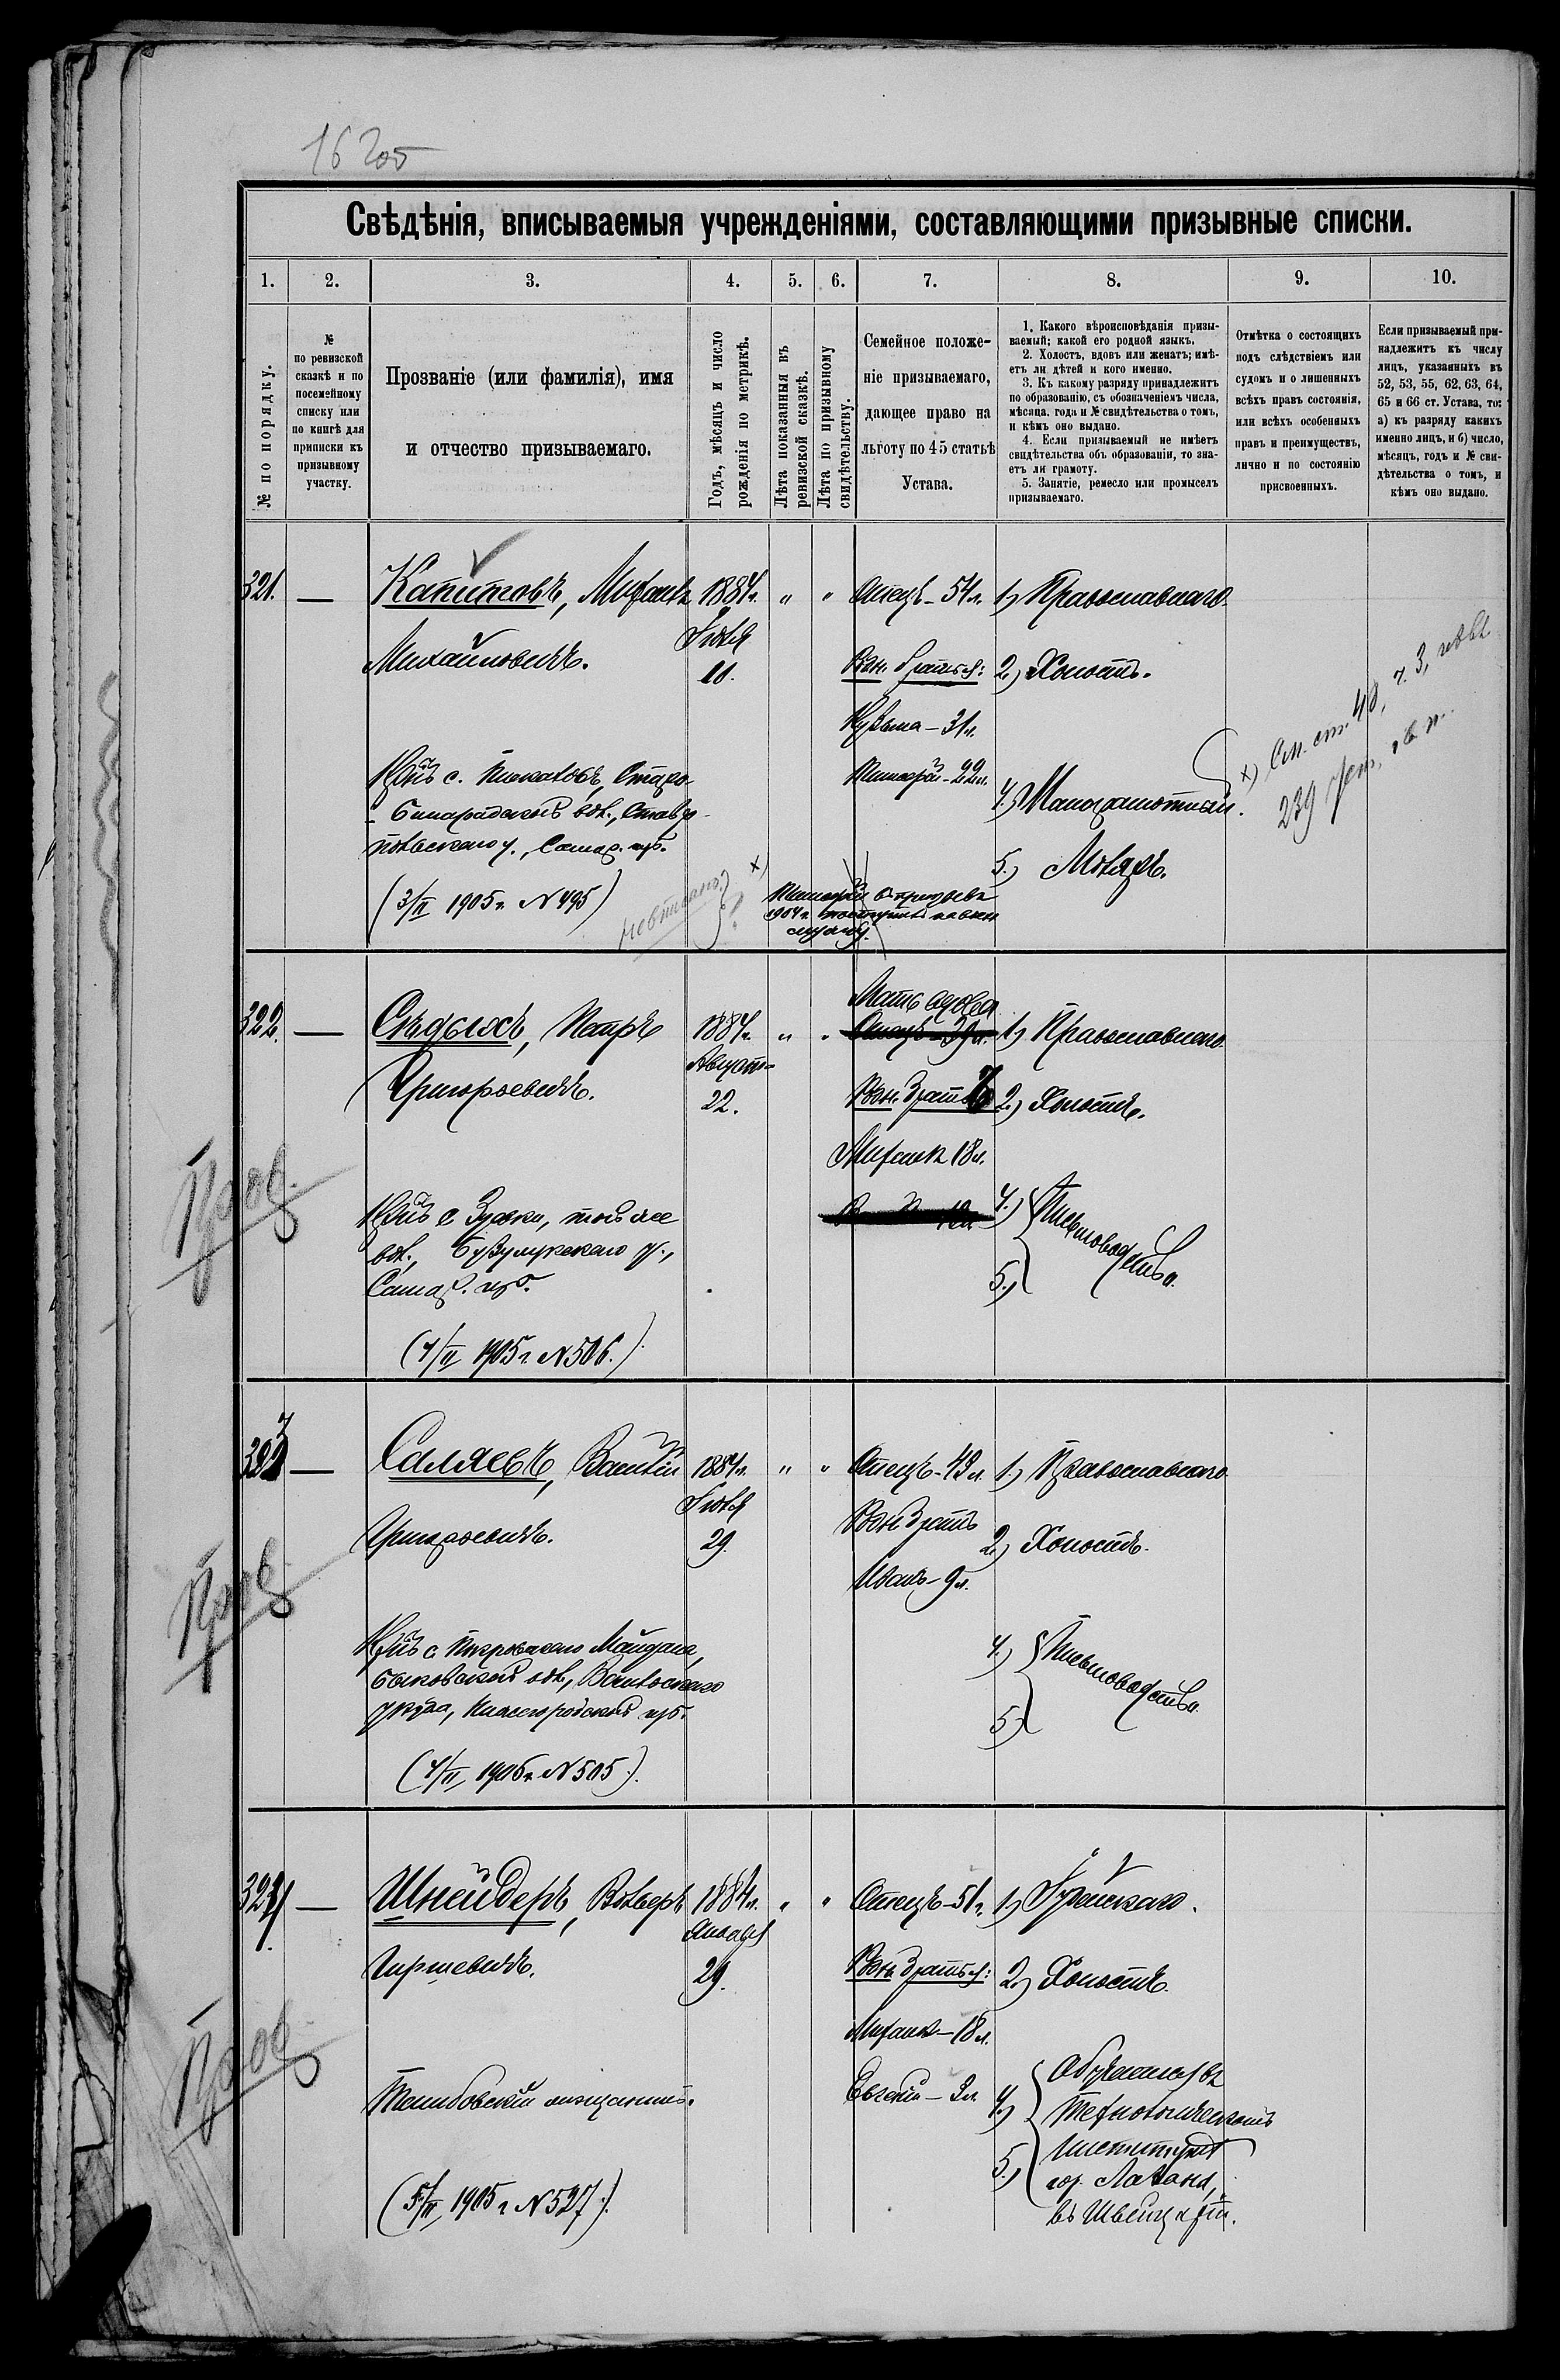 16 205
Свѣдѣнія, вписываемыя учрежденіями, составляющими призывные списки.
1. 2. 3. 4. 5. 6. 7. 8. 9. 10.
№ по порядку.
№
по ревизской
сказкѣ и по
посемейному
списку или
по книгѣ для
приписки къ
призывному
участку.
Прозваніе (или фамилія), имя
и отчество призываемаго.
Годъ, мѣсяцъ и число
рожденія по метрикѣ.
Лѣта показанныя въ
ревизской сказкѣ.
Лѣта по призывному
свидѣтельству.
Семейное положе-
ніе призываемаго,
дающее право на
льготу по 45 статьѣ
Устава.
1. Какого вѣроисповѣданія призы-
ваемый; какой его родной языкъ.
2. Холостъ, вдовъ или женатъ; имѣ-
етъ ли дѣтей и кого именно.
3. Къ какому разряду принадлежитъ
по образованію, съ обозначеніемъ числа,
мѣсяца, года и № свидѣтельства о томъ,
и кѣмъ оно выдано.
4. Если призываемый не имѣетъ
свидѣтельства объ образованіи, то зна-
етъ ли грамоту.
5. Занятіе, ремесло или промыселъ
призываемаго.
Отмѣтка о состоящихъ
подъ слѣдствіемъ или
судомъ и о лишенныхъ
всѣхъ правъ состоянія,
или всѣхъ особенныхъ
правъ и преимуществъ,
лично и по состоянію
присвоенныхъ.
Если призываемый при-
надлежитъ къ числу
лицъ, указанныхъ въ
52, 53, 55, 62, 63, 64,
65 и 66 ст. Устава, то:
а) къ разряду какихъ
именно лицъ, и б) число,
мѣсяцъ, годъ и № сви-
дѣтельства о томъ, и
кѣмъ оно выдано.
321. — Капитовъ, Михаилъ
Михайловичъ.
Кр-нъ с.
Старо-
Бинарадской вол., Ставро-
польскаго у., Самар. губ.
(3/II 1905 г. № 495)
1884 г.
Іюля
11.
" "
Отецъ - 54 л.
Родн. братья:
Кузьма - 31 л.
22 л.
1) Православнаго.
2.) Холостъ.
4.) Малограмотный.
5.) Маляръ.
х) См. ст. 40, ч. 3,
239
х)
1904 г. поступилъ на воен
службу.
322. — Сѣдыхъ, Петръ
Григорьевичъ.
Кр-нъ с
той же
вол., Бузулукскаго у.,
Самар. губ.
(4/II 1905 г. № 506.)
1884 г.
Августа
22.
" "
Мать вдова
Отецъ - 39 л.
Родн. братъ
Михаилъ 18 л.
1) Православнаго.
2.) Холостъ.
4.)
5.)
Письмоводство.
323 — Саляевъ, Василій
Григорьевичъ.
Кр-нъ с. Покровскаго Майдана,
Быковской вол., Васильскаго
уѣзда, Нижегородской губ.
(4/II 1905 г. № 505).
1884 г.
Іюля
29.
" "
Отецъ - 43 л.
Родн братъ
Иванъ - 9 л.
1.) Православнаго
2.) Холостъ.
4.)
5)
Письмоводство.
324. — Шнейдеръ, Вольфъ
Гиршевичъ.
Тамбовскій мѣщанинъ.
(5/II 1905 г. № 527).
1884 г.
Января
29.
" "
Отецъ - 51 г.
Родн братья:
Михаилъ - 18 л.
Евгеній - 3 л.
1) Іудейскаго.
2.) Холостъ.
4.)
5.)
Обучается въ
Технологическомъ
институтѣ
гор. Лозаны,
въ Швейцаріи.